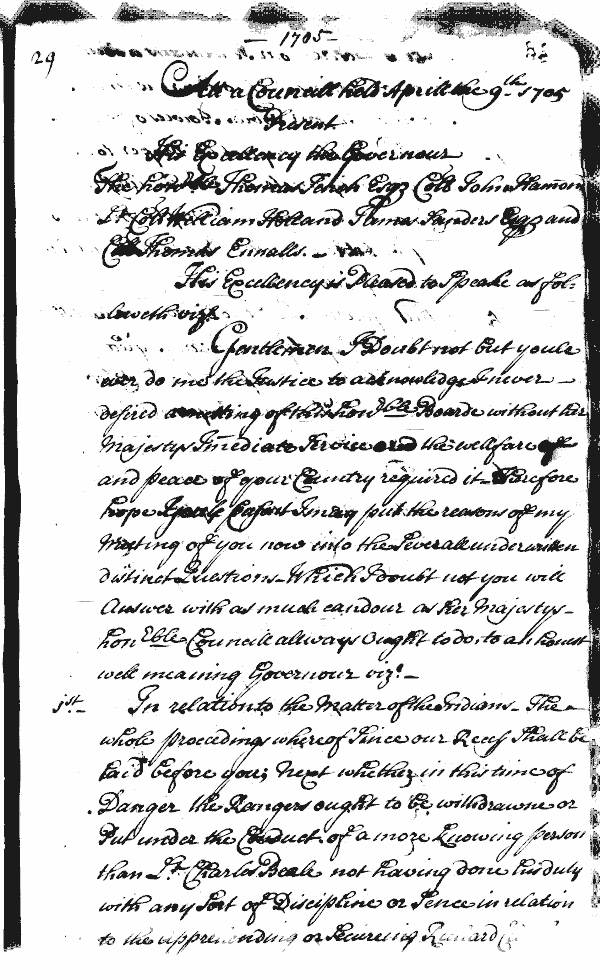 — 1705 —
29
Att a Councill held Aprill the 9th 1705
Present
His Excellency the Governour
The honble Thomas Esqz Coll John Hamon
Lt Coll William Holland James Sanders Esqz and
Coll Thomas Ennalls. —
His Excellency is Pleased to Speake as fol:
loweth vizt
Gentlemen I Doubt not but youle
ever do me the Justice to acknowledge I never —
desired a meeting of this hon Eble Boarde without her
Majestys Imediate Service and the wellfare of
and peace of your Country required it — Therefore
hope I may putt the reasons of my
Meeting of you now into the Severall underwritten
distinct Questions — Which I doubt not you will
Answer with as much candour as her Majestys —
hon Eble Councill allways ought to do, to an honest
well meaning Governour vizt —
1st — In relation to the Matter of the Indians — The —
whole procedings whereof Since our Recess Shall be
laid before you; Next whether in this time of
Danger the Rangers ought to be withdrawne or
Put under the Conduct of a more knowing person
than Lt Charles Beale not having done his duty
with any Sort of Discipline or Sence in relation
to the apprehending or Secureing